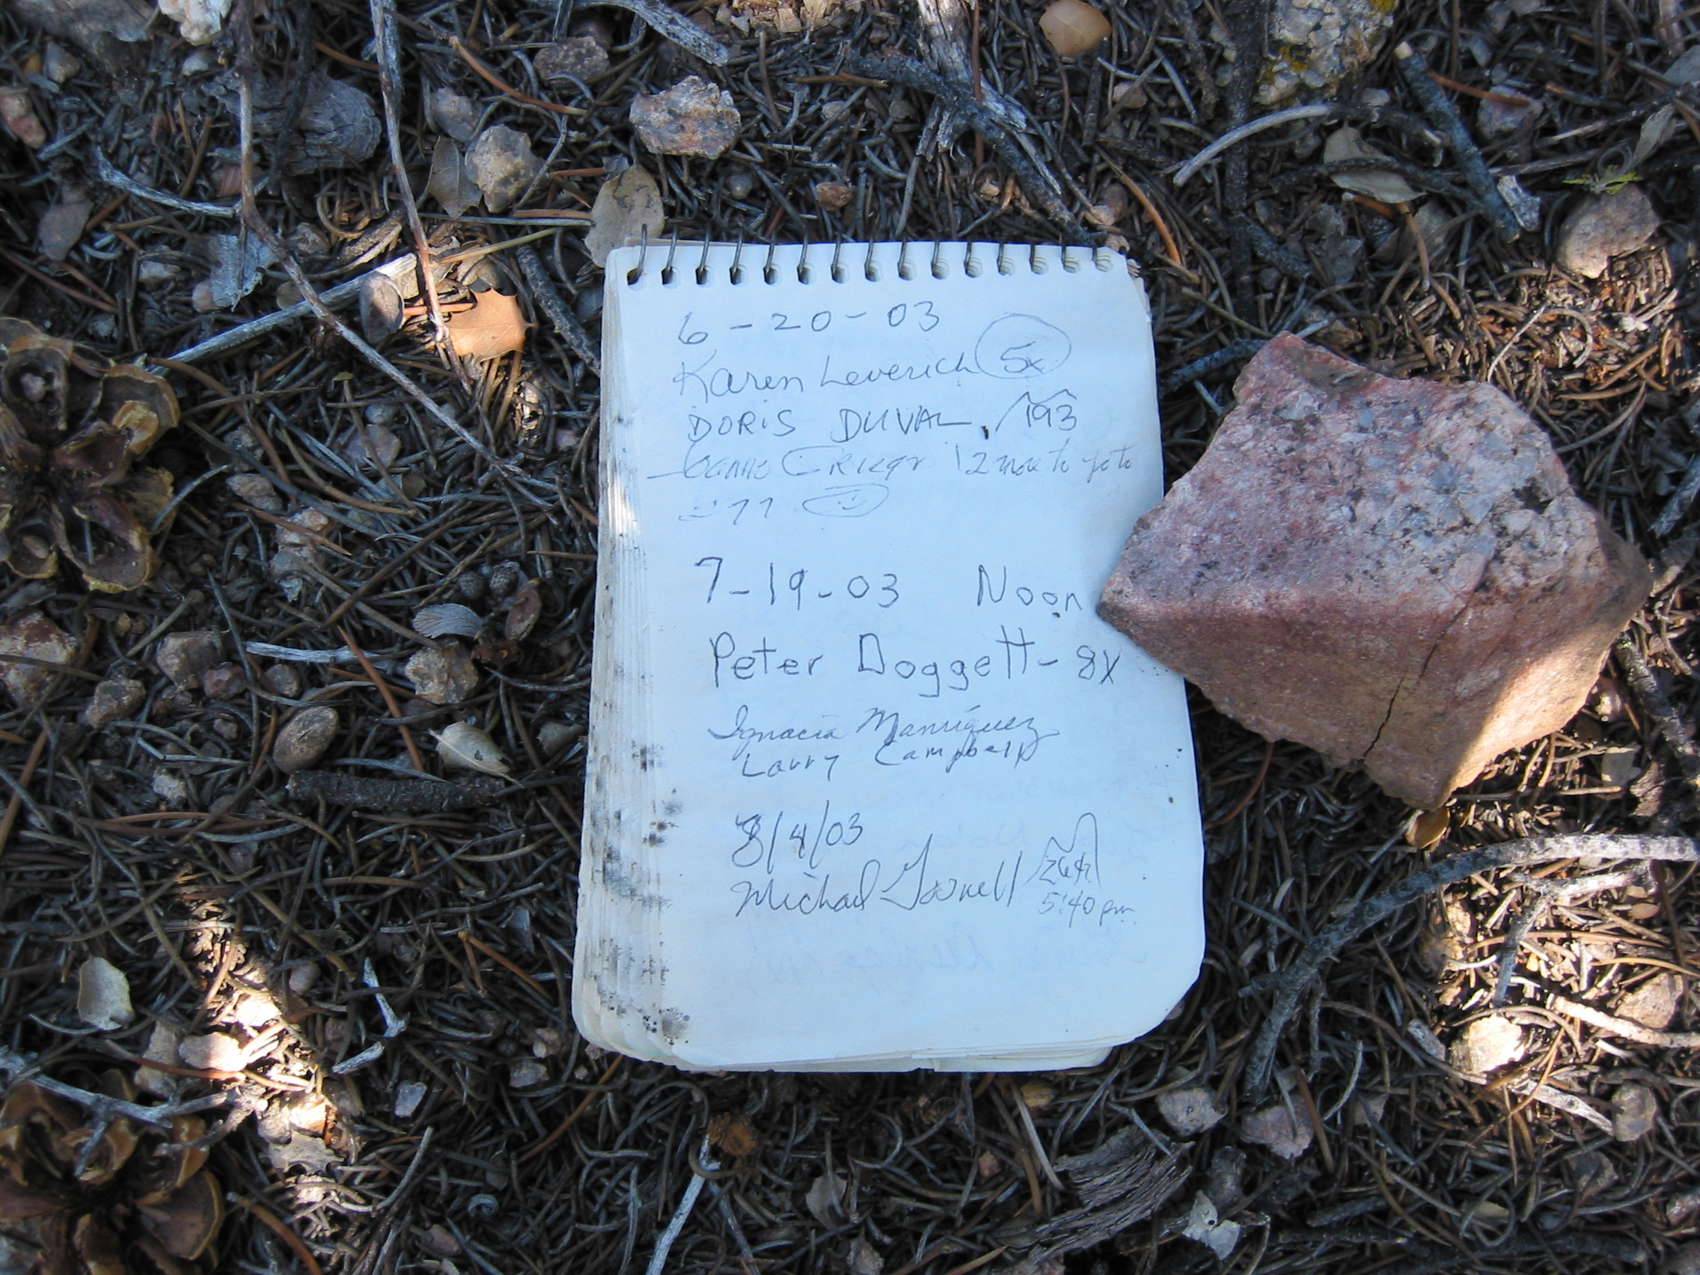 6-20-03
Karen Leverich 5x
DORIS DUVAL, 193
12 more to go to
277
7-19-03 Noon
Peter Doggett - 8X
Ignacia Manriquez
Larry Campbell
8/4/03
Michael
5:40 pm